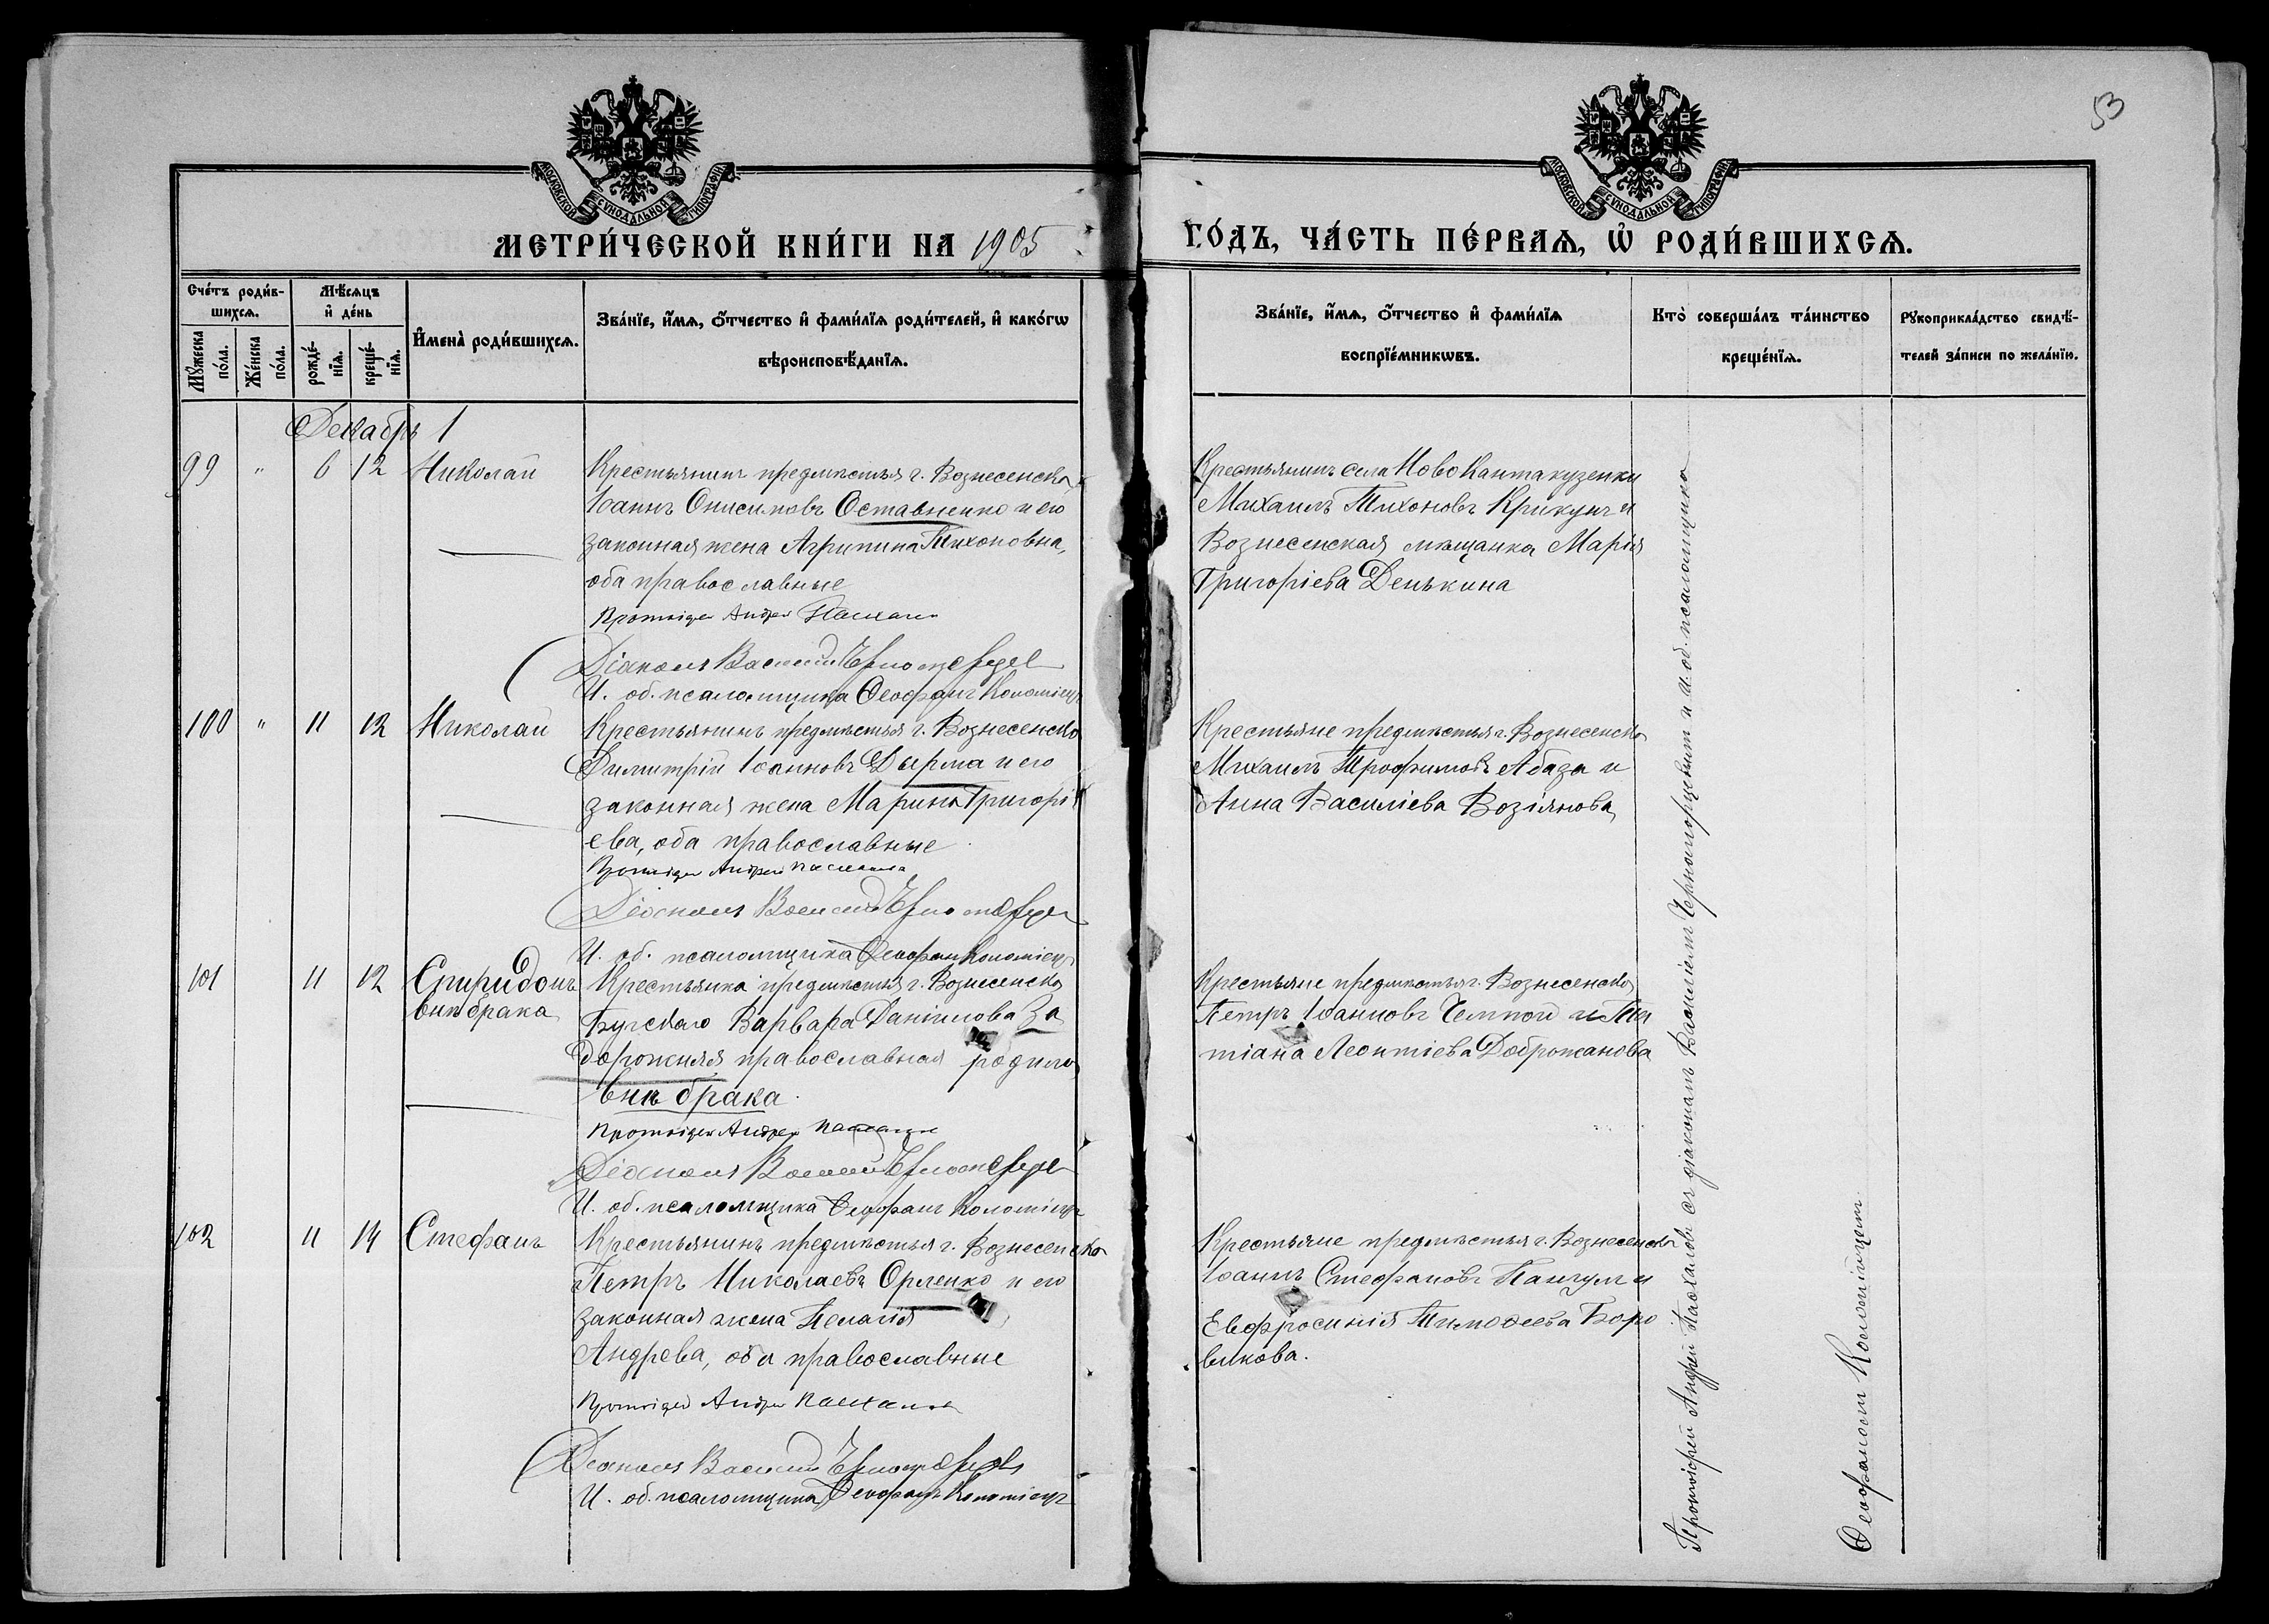 53
МОСКОВСКОЙ СѴНОДАЛЬНОЙ ТИПОГРАФІИ
МОСКОВСКОЙ СѴНОДАЛЬНОЙ ТИПОГРАФІИ
МЕТРИ́ЧЕСКОЙ КНИ́ГИ НА 1905
ГО́ДЪ, ЧА́СТЬ ПЕ́РВАѦ, Ѡ҆ РОДИ́ВШИХСѦ.
Сче́тъ роди́в-
шихсѧ.
Мꙋжеска по́ла.
Же́нска по́ла.
Мѣ́сѧцъ
и҆ де́нь
рожде́-
нїѧ.
креще́-
нїѧ.
И҆мена̀ роди́вшихсѧ.
Зва́нїе, и҆́мѧ, ѻ҆́тчество и҆ фами́лїѧ роди́телей, и҆ како́гѡ
вѣроисповѣ́данїѧ.
Зва́нїе, и҆́мѧ, ѻ҆́тчество и҆ фами́лїѧ
воспрїе́мникѡвъ.
Кто̀ соверша́лъ та́инство
креще́нїѧ.
Рꙋкоприкла́дство свидѣ́-
телей за́писи по жела́нїю.
Декабрь 1
99 " 6 12 Николай
Крестьянинъ предмѣстья г. Вознесенска
Іоаннъ Онисимовъ Оставненко и его
законная жена Агрипина Тихоновна,
оба православные
Протоіерей Андрей Пасхаловъ
Діаконъ Василій
И. об. псаломщика Ѳеофанъ Коломіецъ
Крестьянинъ села Ново Кантакузенки
Михаилъ Тихоновъ Крикунъ и
Вознесенская мѣщанка Марія
Григоріева Денькина
100 " 11 12 Николай
Крестьянинъ предмѣстья г. Вознесенска
Димитрій Іоанновъ Дырма и его
законная жена Марина Григорі
ева, оба православные
Протоіерей Андрей Пасхаловъ
Діаконъ Василій
И. об. псаломщика Ѳеофанъ Коломіецъ
Крестьяне предмѣстья г. Вознесенска
Михаилъ Трофимовъ Абаза и
Анна Василіева Возіянова
101 11 12 Спиридонъ
внѣ брака
Крестьянка предмѣстья г. Вознесенска
Бугскаго Варвара Даніилова За
дорожняя православная родила
внѣ брака
Протоіерей Андрей Пасхаловъ
Діаконъ Василій
И. об. псаломщика Ѳеофанъ Коломіецъ
Крестьяне предмѣстья г. Вознесенска
Петръ Іоанновъ Чемной и Та
тіана Леонтіева Доброжанова
102 11 14 Стефанъ
Крестьянинъ предмѣстья г. Вознесенска
Петръ Николаевъ Орленко и его
законная жена Пелагія
Андрева, оба православные
Протоіерей Андрей Пасхаловъ
Діаконъ Василій
И. об. псаломщика Ѳеофанъ Коломіецъ
Крестьяне предмѣстья г. Вознесенска
Іоаннъ Стефановъ Панчулъ и
Евфросинія Тимоѳеева Боро
викова.
Протоіерей Андрей Пасхаловъ съ діакономъ Василіемъ Черногорцевымъ и и. об. псаломщика
Ѳеофаномъ Коломійцемъ